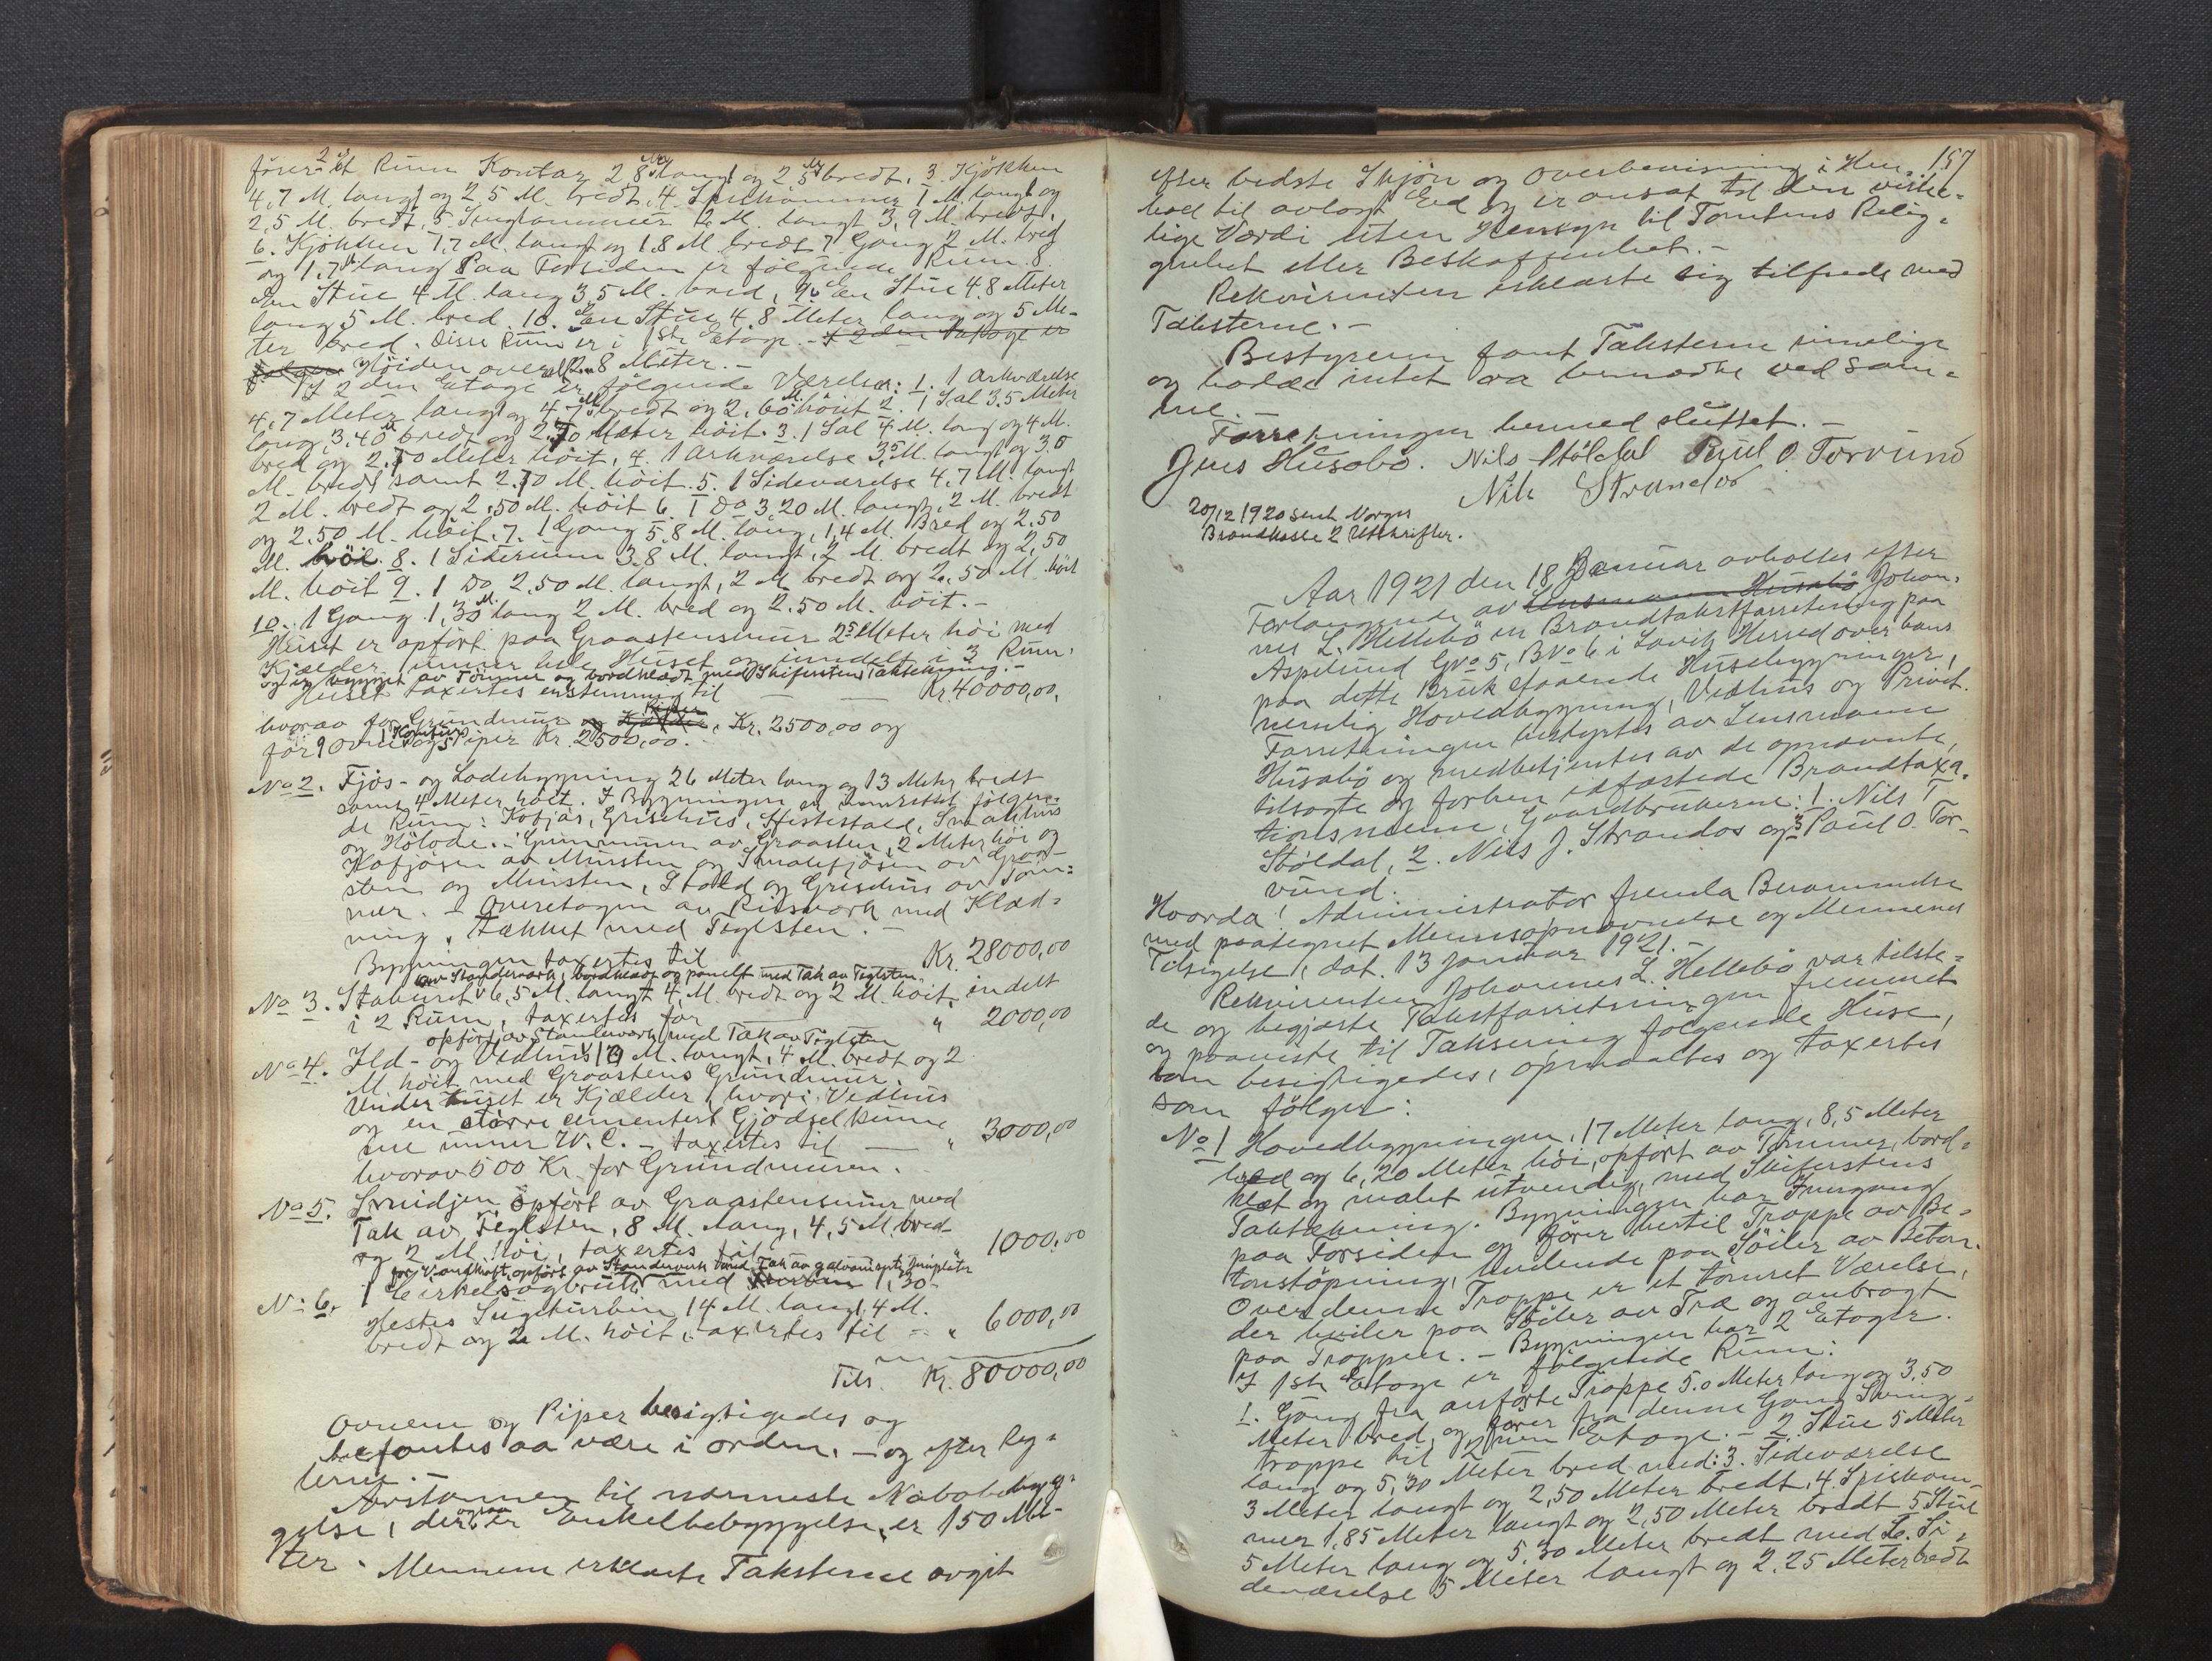 fører 2 et Rum Kontor 2,8 M. langt og 2,5 M. bredt, 3. Kjøkken
4,7 M. langt og 2,5 M. bredt, 4. Spiskammer 1 M. langt og
2,5 M. bredt, 5. Sengkammer 2 M. langt 3,9 M. bredt.
6. Kjøkken 7,7 M. langt og 1,8 M. bredt 7 Gang 2 M. bred
og 1,7 M. lang Paa Forsiden er følgende Rum. 8.
En Stue 4 M. lang 3,5 M. bred, 9. En Stue 4,8 Meter
lang 5 M. bred 10. En Stue 4,8 Meter lang og 5 Me-
ter bred. Disse Rum er i 1ste Etage. - I 2den Etage er
følgen Høiden overalt 2,8 Meter. -
I 2den Etage er følgende Værelser: 1. 1 Arkværelse
4,7 Meter langt og 4,7 M. bredt og 2,60 M. høit 2. 1 Sal 3,5 Meter
lang, 3,40 M. bredt og 2,70 Meter høit. 3. 1 Sal 4 M. lang og 4 M.
bred og 2,70 Meter høit, 4. 1 Arkværelse 3,5 M. langt og 3,0
M. bredt samt 2,70 M. høit. 5. 1 Sideværelse 4,7 M. langt
2 M. bredt og 2,50 M. høit 6. 1 Do 3,20 M. langt, 2 M. bredt
og 2,50 M. høit, 7. 1 Gang 5,8 M. lang, 1,4 M. Bred og 2,50
M. høi. 8. 1 Siderum 3,8 M. langt, 2 M. bredt og 2,50
M. høit 9. 1 Do 2,50 M. langt, 2 M. bredt og 2,50 M. høit
10. 1 Gang 1,30 M. lang 2 M. bred og 2,50 M. høit. -
Huset er opført paa Graastensmur 2,5 Meter høi med
Kjælder under hele Huset og inndelt i 3 Rum.
og er bygget av Tømmer og bordklædt med Skifersten Taktekning. -
Huset taxertes enstemmig til — — Kr 40000,00,
hvorav for Grundmur og Kjælder Piper Kr. 2500,00 og
for 9 ovner 1 Komfur og Piper Kr. 2500,00.
No 2. Fjøs- og Ladebygning 26 Meter lang og 13 Meter bredt
samt 4 Meter høit. I Bygningen er innredet følgen-
de Rum: Kofjøs, Grisehus, Hestestald, Smalehus
og Hølade. - Grunmuren av Graasten, 2 Meter høi og
Kofjøsen av Mursten og Smalefjøsen av Graa-
sten og Mursten, Stald og Grisehus av Tøm-
mer. - Overetagen av Bitsverk med Klæd-
ning, tækket med Teglsten. -
Bygningen taxertes til Kr. 28000,00
av Standerverk, bordklædt og panelt med Tak av Teglsten.
No 3. Staburet 6,5 M. langt 4 M. bredt og 2 M. høit, indelt
i 2 Rum, taxertes for — " 2000,00
opført av Standerverk med Tak av Teglsten
No 4. Ild- og Vedhus 10 M. langt, 4 M. bredt og 2
M. høit med Graastens Grundmur.
Under huset er Kjælder, hvori Vedhus
og en større cementert Gjødselkum-
me unner W.C. - taxertes til — " 3000,00
hvorav 500 Kr. for Grundmuren.
No 5. Smidjen, opført av Graastensmur med
Tak av Teglsten, 8 M. lang, 4,5 M. bred
og 2 M. høi, taxertes til " 1000,00
for Vandkraft, opført av Standerverk med Tak av galvaniserte Jernplater
No 6. 1 Cirkelsagbruk med Turbin 1,30
Hestes Sugeturbin, 14 M. langt, 4 M.
bredt og 2 M. høit, taxertes til — " 6000,00
Tils. Kr. 80000,00
Ovnene og Piper besigtigedes og
befantes aa være i orden. - og efter Reg-
lerne. -
Avstannen til nærmeste Nabobebyg-
gelse, der ogsaa er Enkelbebyggelse, er 150 Me-
ter. Mennene erklærte Taksterne avgit
157
efter bedste Skjøn og Overbevisning i Hen-
hold til avlagt Ed og er ansat til den virke-
lige Værdi uten Hensyn til Tomtens Belig-
genhet eller Beskaffenhet. -
Rekvirenten erklærte sig tilfreds med
Taksterne. -
Bestyreren fant Taksterne rimelige
og hadde intet aa bemærke ved sam-
me. -
Forretningen hermed sluttet. -
Jens Husabø. Nils Støldal Paul O. Torvund
Nils Strandos
20/12 1920 sent Norges
Brandkasse 2 Utskrifter.
Aar 1921 den 18 Januar avholtes efter
Forlangende av Lensmann Husabø Johan-
nes L. Hellebø en Brandtakstforretning paa
Aspelund Gno 5, Bno 6 i Lavik Herred over hans
paa dette Bruk staaende Husebygninger,
nemlig Hovedbygning, Vedhus og Privet.
Forretningen bestyrtes av Lensmann
Husabø og medbetjentes av de opnævnte,
tilsagte og forhen edfæstede Brandtaxa-
tionsmenn, Gaardbrukerne: 1. Nils T
Støldal, 2. Nils J. Strandos og 3 Paul O. Tor-
vund.
Hvorda! Administrator fremla Berammelse
med paategnet Mennsopnævnelse og Mennenes
Tilsigelse, dat. 13 Januar 1921. -
Rekvirenten Johannes L. Hellebø var tilste-
de og begjærte Takstforretningen fremmet
og paaviste til Taksering følgende Huse,
som besigtigedes, opmaaltes og taxertes
som følger:
No 1 Hovedbygningen, 17 Meter lang, 8,5 Meter
bred og 6,20 Meter høi, opført av Tømmer, bord-
klæt og malet utvendig, med Skiferstens
Taktekning. Bygningen har Inngang
paa Forsiden og fører hertil Trappe av Be-
tonstøpning, hvilende paa Søiler av Beton.
Over denne Trappe er et tømret Værelse,
der hviler paa Søiler av Træ og anbragt
paa Trappen. - Bygningen har 2 Etager.
I 1ste Etage er følgende Rum:
1. Gang fra anførte Trappe 5,0 Meter lang og 3,50
Meter bred, og fører fra denne Gang Sving-
trappe til 2nen Etage. - 2. Stue 5 Meter
lang og 5,30 Meter bred med: 3. Sideværelse
3 Meter langt og 2,50 Meter bredt, 4. Spiskam-
mer 1,85 Meter langt og 2,50 Meter bredt 5 Stue
5 Meter lang og 5,30 Meter bredt med 6. Si-
deværelse 5 Meter langt og 2,25 Meter bredt